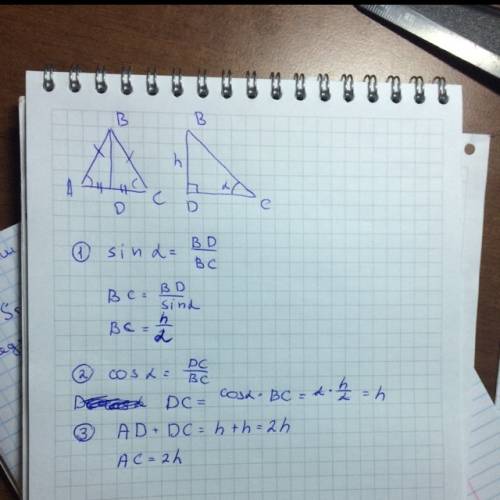 B B
h
A C D C
D α
① sin α = BD/BC
BC = BD/sin α
BC = h/α
② cos α = DC/BC
DC = cos α · BC = α · h/α = h
③ AD + DC = h + h = 2h
AC = 2h